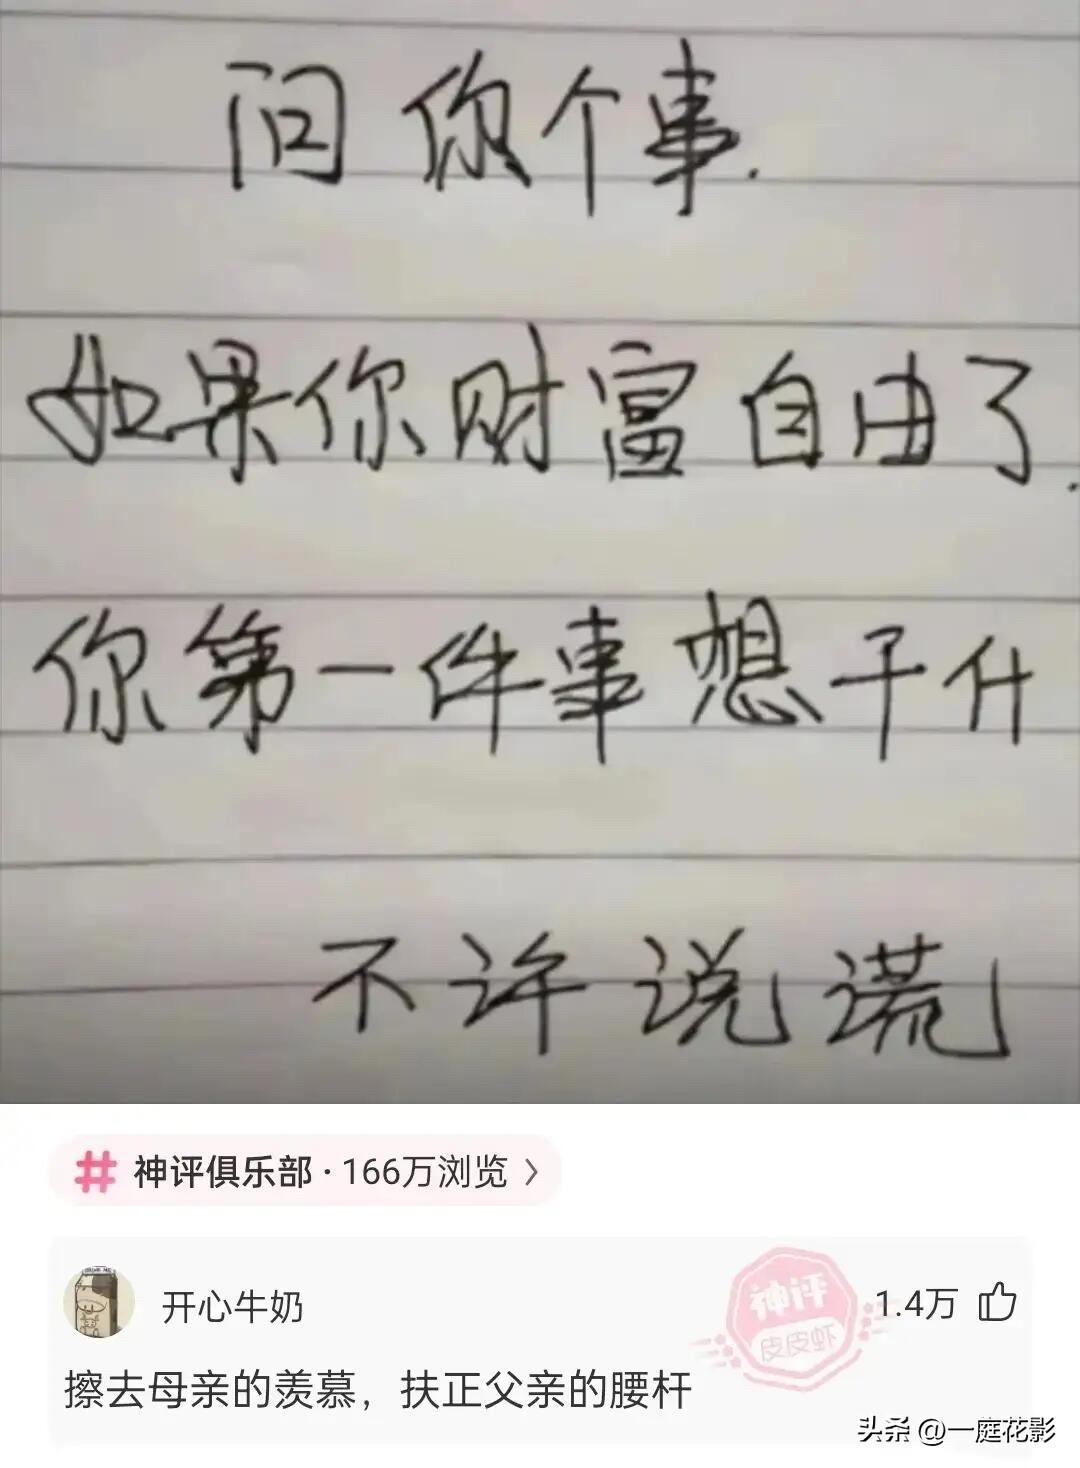 问你个事.
如果你财富自由了.
你第一件事想干什
不许说谎
神评俱乐部·166万浏览
开心牛奶
神评
皮皮虾
1.4万
擦去母亲的羡慕，扶正父亲的腰杆
头条 @一庭花影